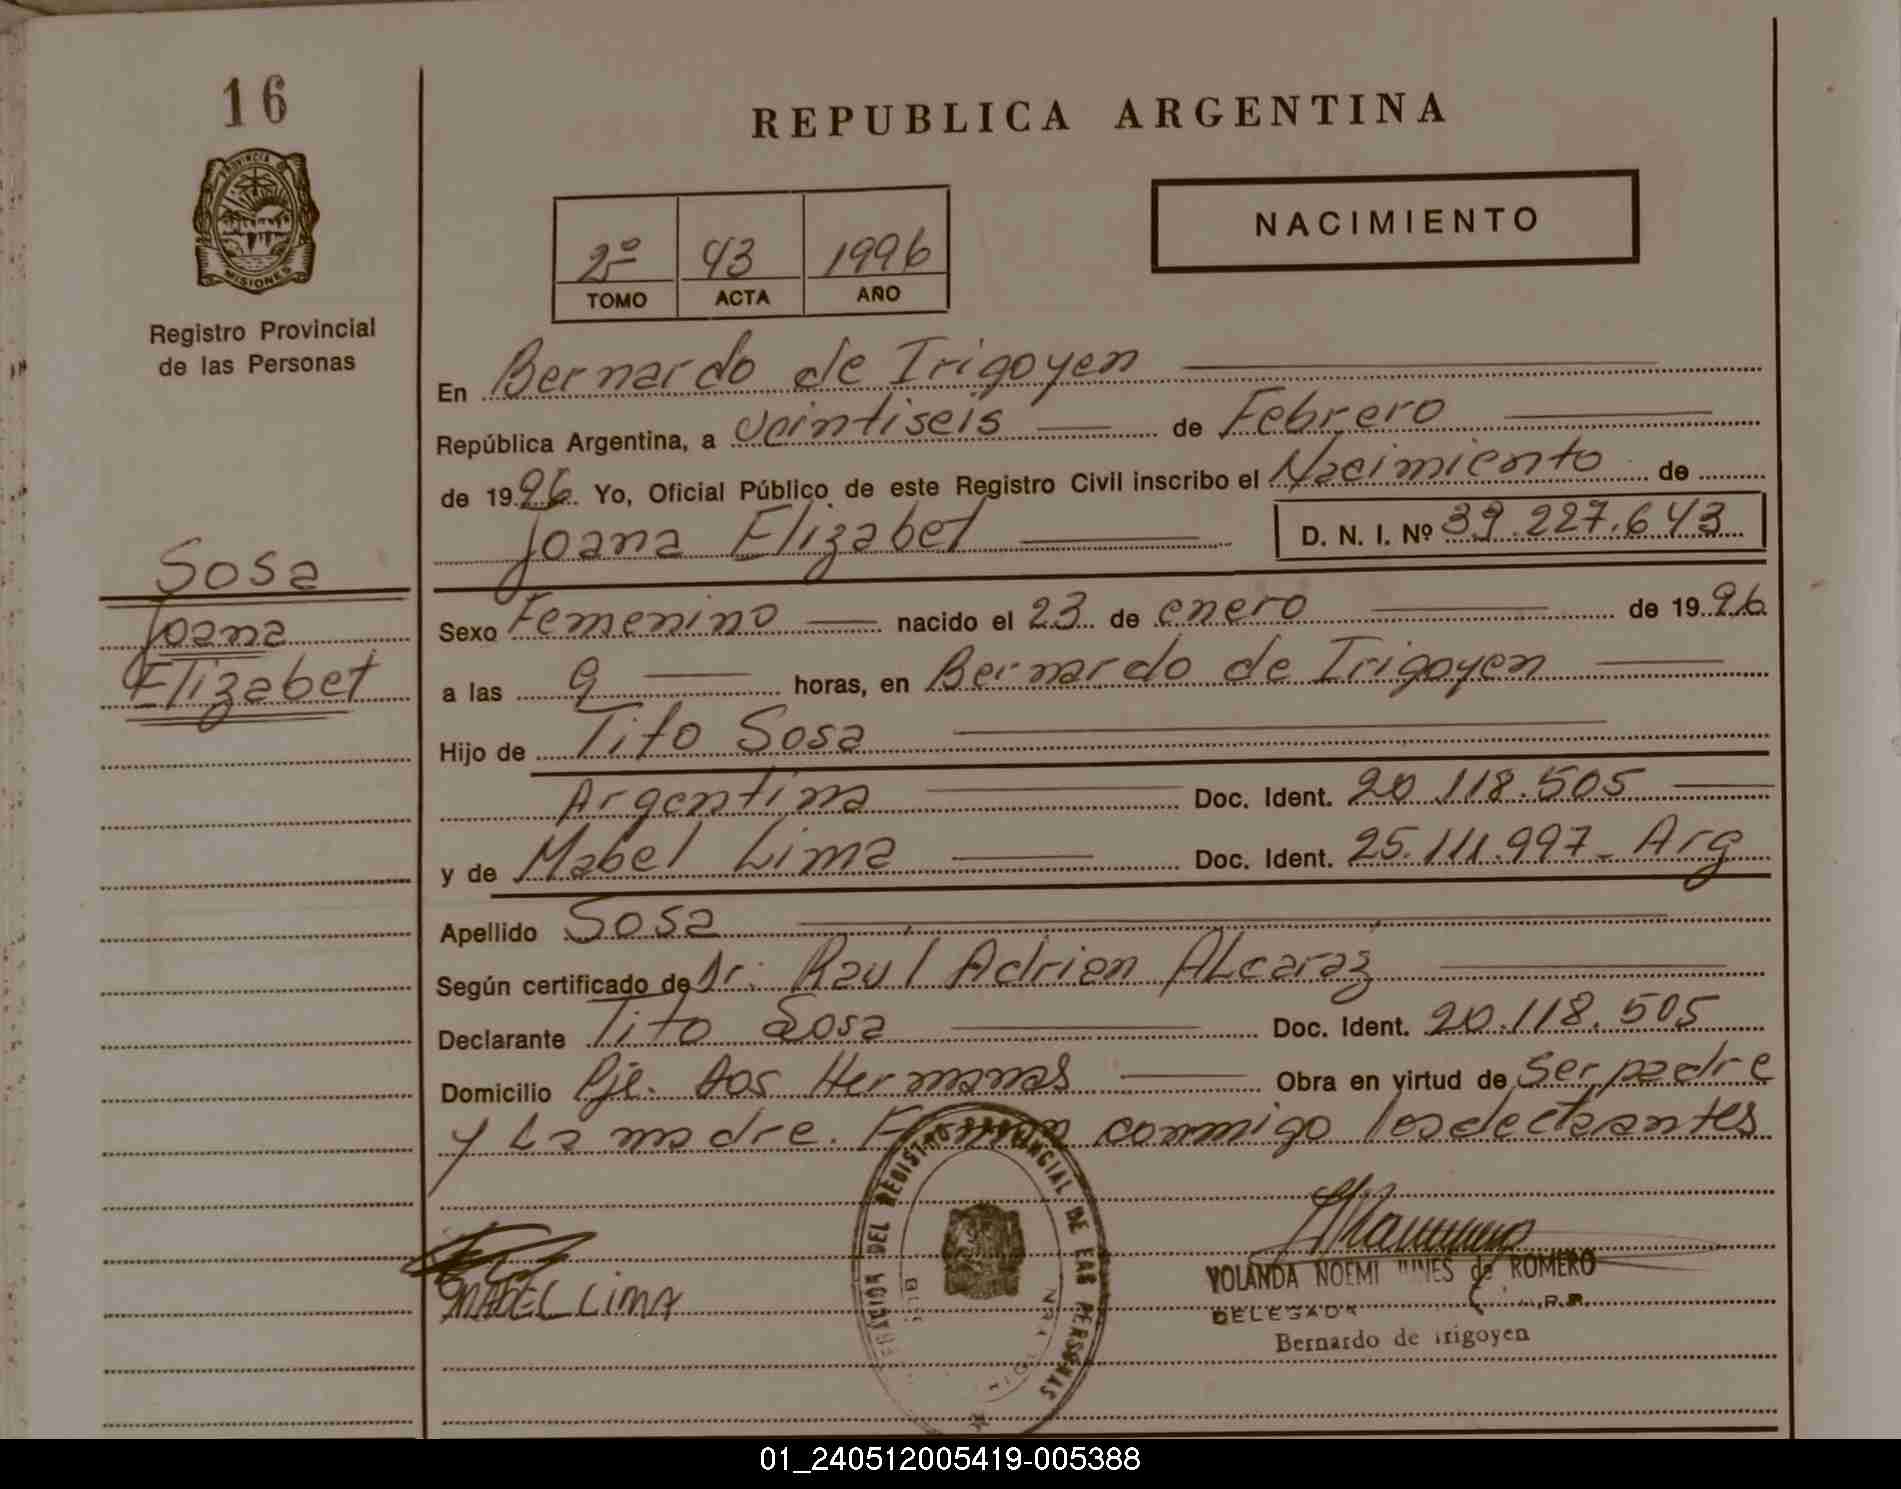 16
REPUBLICA ARGENTINA
PROVINCIA DE
MISIONES
Registro Provincial
de las Personas
NACIMIENTO
2º 43 1996
TOMO ACTA AÑO
En Bernardo de Irigoyen
República Argentina, a veintiseis de Febrero
de 1996. Yo, Oficial Público de este Registro Civil inscribo el Nacimiento de
Joana Elizabet D. N. I. Nº 39.227.643
Sosa
Joana
Elizabet
Sexo Femenino nacido el 23 de enero de 1996
a las 9 horas, en Bernardo de Irigoyen
Hijo de Tito Sosa
Argentina Doc. Ident. 20.118.505
y de Mabel Lima Doc. Ident. 25.111.997 - Arg
Apellido Sosa
Según certificado de Dr. Raul Adrien ALcaraz
Declarante Tito Sosa Doc. Ident. 20.118.505
Domicilio Pje. Dos Hermanas Obra en virtud de ser padre
y La madre. Firman conmigo los declarantes
DEL REGISTRO PROVINCIAL DE LAS PERSONAS
MABEL LIMA
YOLANDA NOEMI de ROMERO
DELEGADA R.P.
Bernardo de Irigoyen
01_240512005419-005388